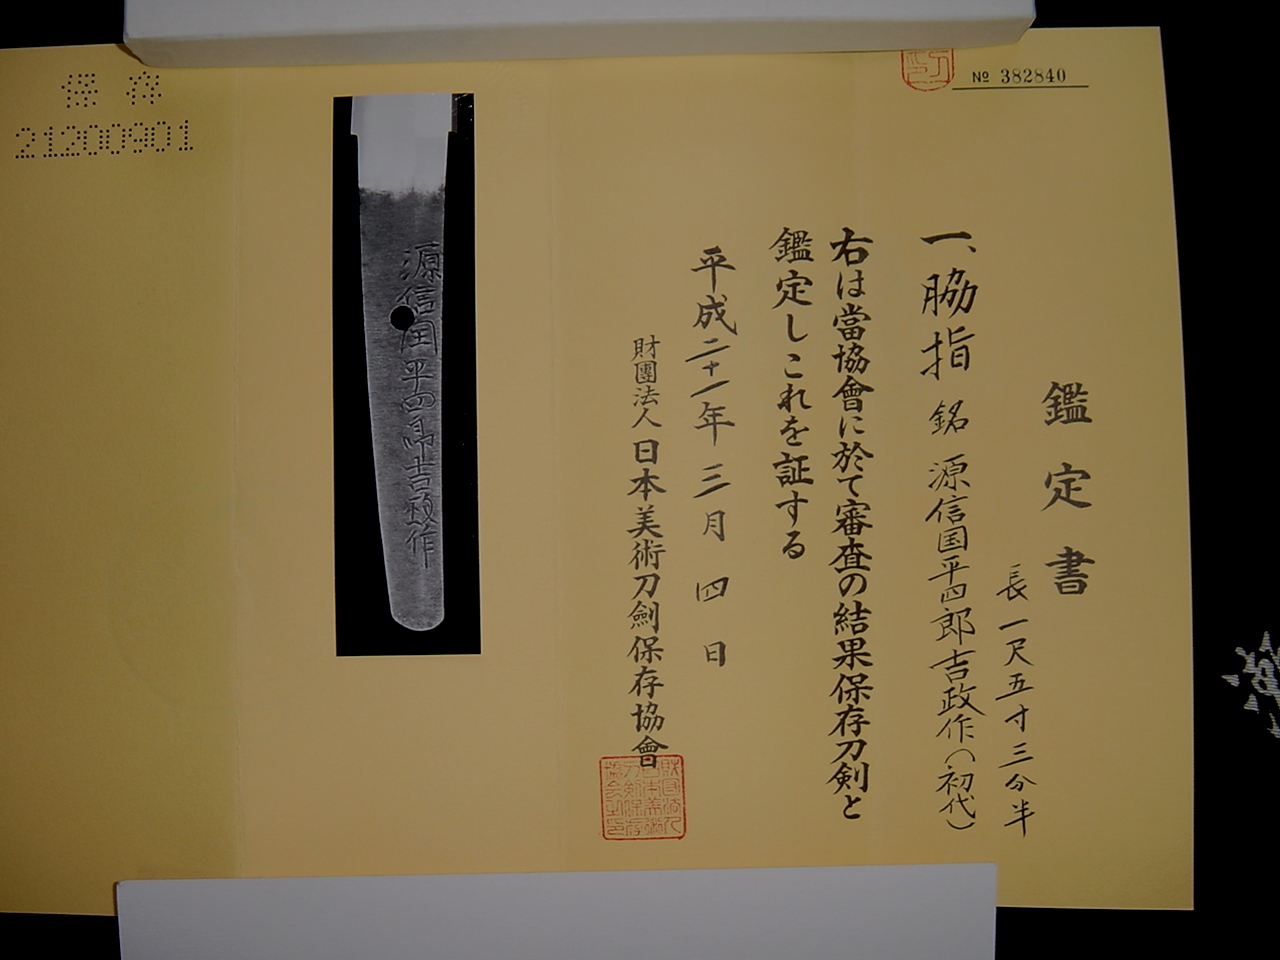 № 382840
鑑定書
長一尺五寸三分半
一、脇指 銘 源信国平四郎吉政作(初代)
右は當協會に於て審査の結果保存刀剣と
鑑定しこれを証する
平成二十一年三月四日
財團法人日本美術刀劍保存協會
源信国平四郎吉政作
保存
21200901